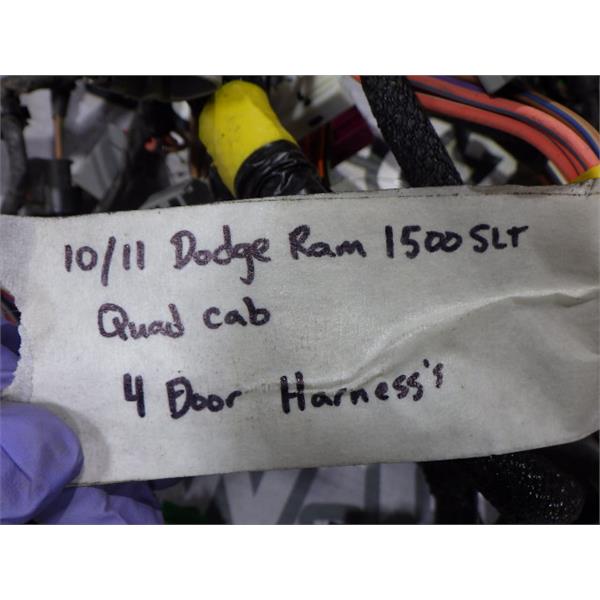 10/11 Dodge Ram 1500 SLT
Quad cab
4 Door Harness's